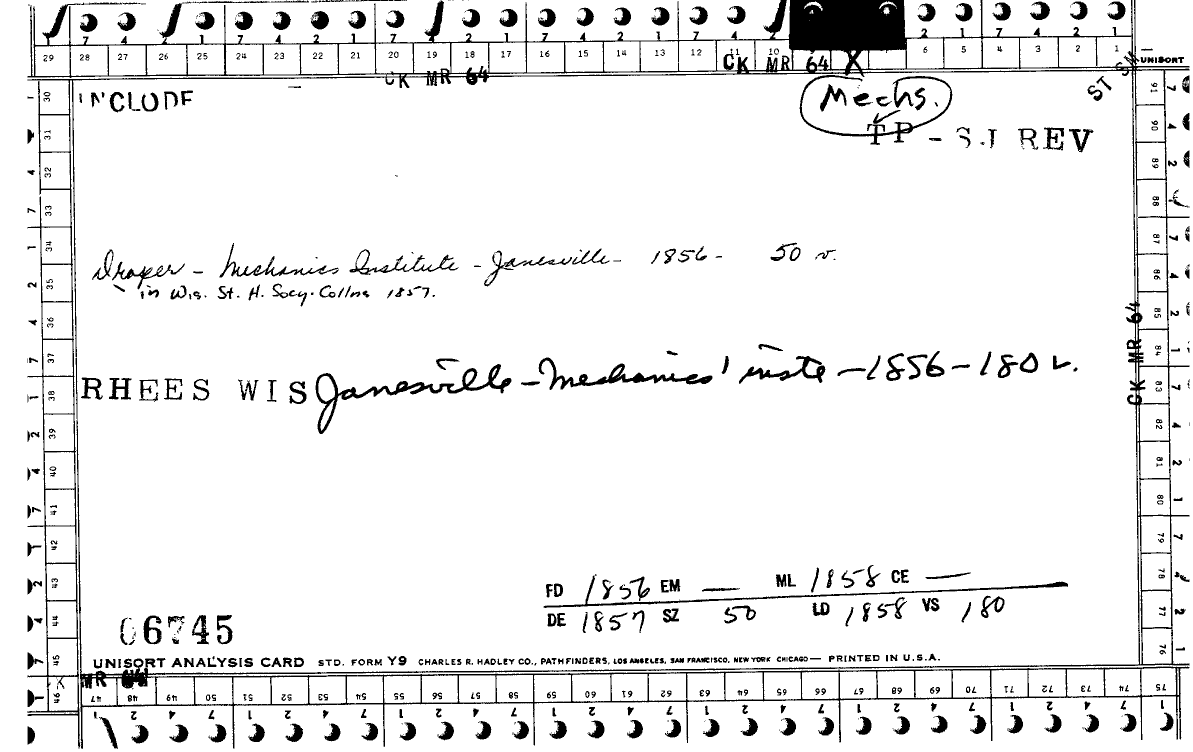 29 28 27 26 25 24 23 22 21 20 19 18 17 16 15 14 13 12 11 10 6 5 4 3 2 1 UNISORT
CK MR 64 CK MR 64 X ST SM
INCLUDE
Mechs.
TP - SJ REV
Draper - Mechanics Institute - Janesville - 1856 - 50 v.
in Wis. St. H. Socy. Collns 1857.
CK MR 64
RHEES WIS Janesville - Mechanics' inste - 1856 - 180 v.
FD 1856 EM — ML 1858 CE —
DE 1857 SZ 50 LD 1858 VS 180
06745
UNISORT ANALYSIS CARD STD. FORM Y9 CHARLES R. HADLEY CO., PATHFINDERS, LOS ANGELES, SAN FRANCISCO, NEW YORK CHICAGO — PRINTED IN U.S.A.
MR 64
30 31 32 33 34 35 36 37 38 39 40 41 42 43 44 45 46
47 48 49 50 51 52 53 54 55 56 57 58 59 60 61 62 63 64 65 66 67 68 69 70 71 72 73 74 75
91 90 89 88 87 86 85 84 83 82 81 80 79 78 77 76